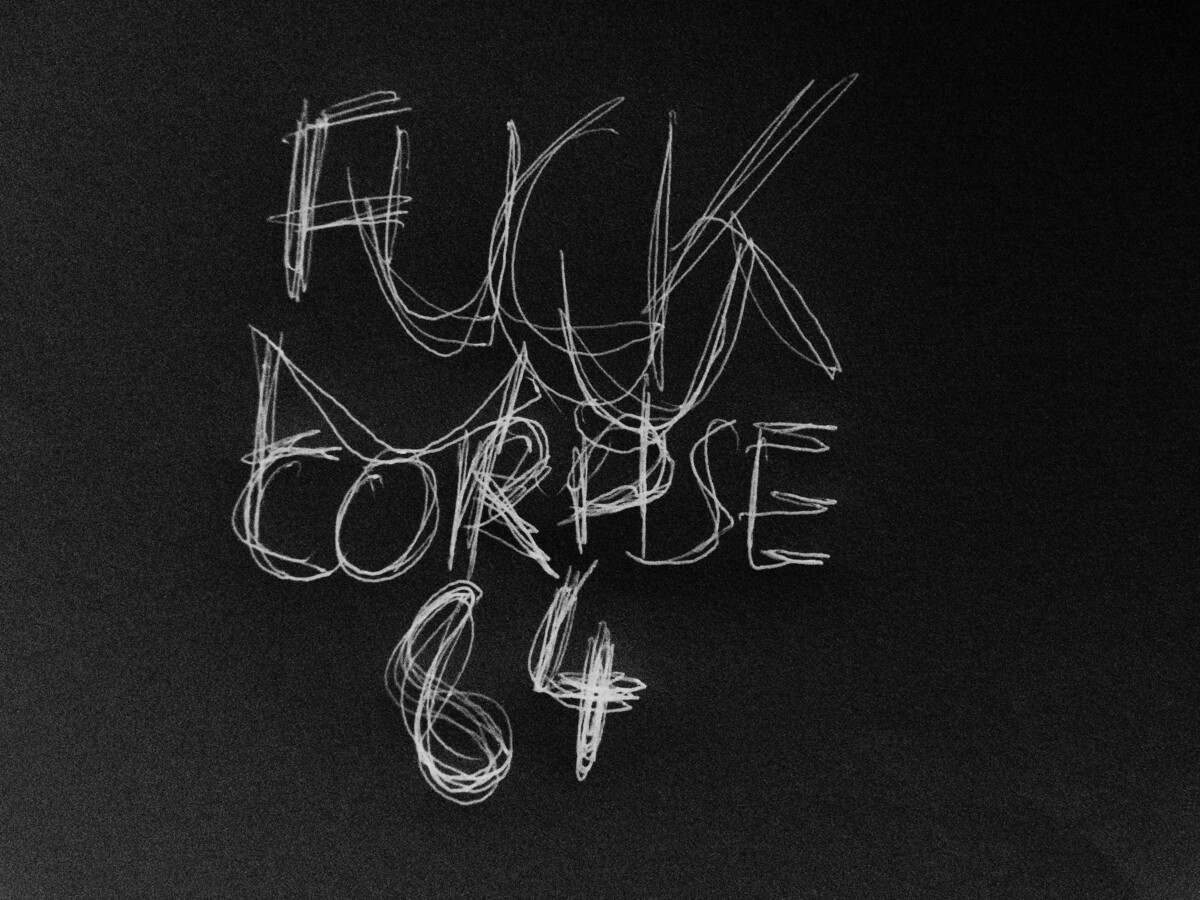 FUCK
CORPSE
64